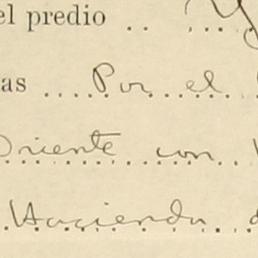 el predio ..
as .... Por el
Oriente con
Hacienda d